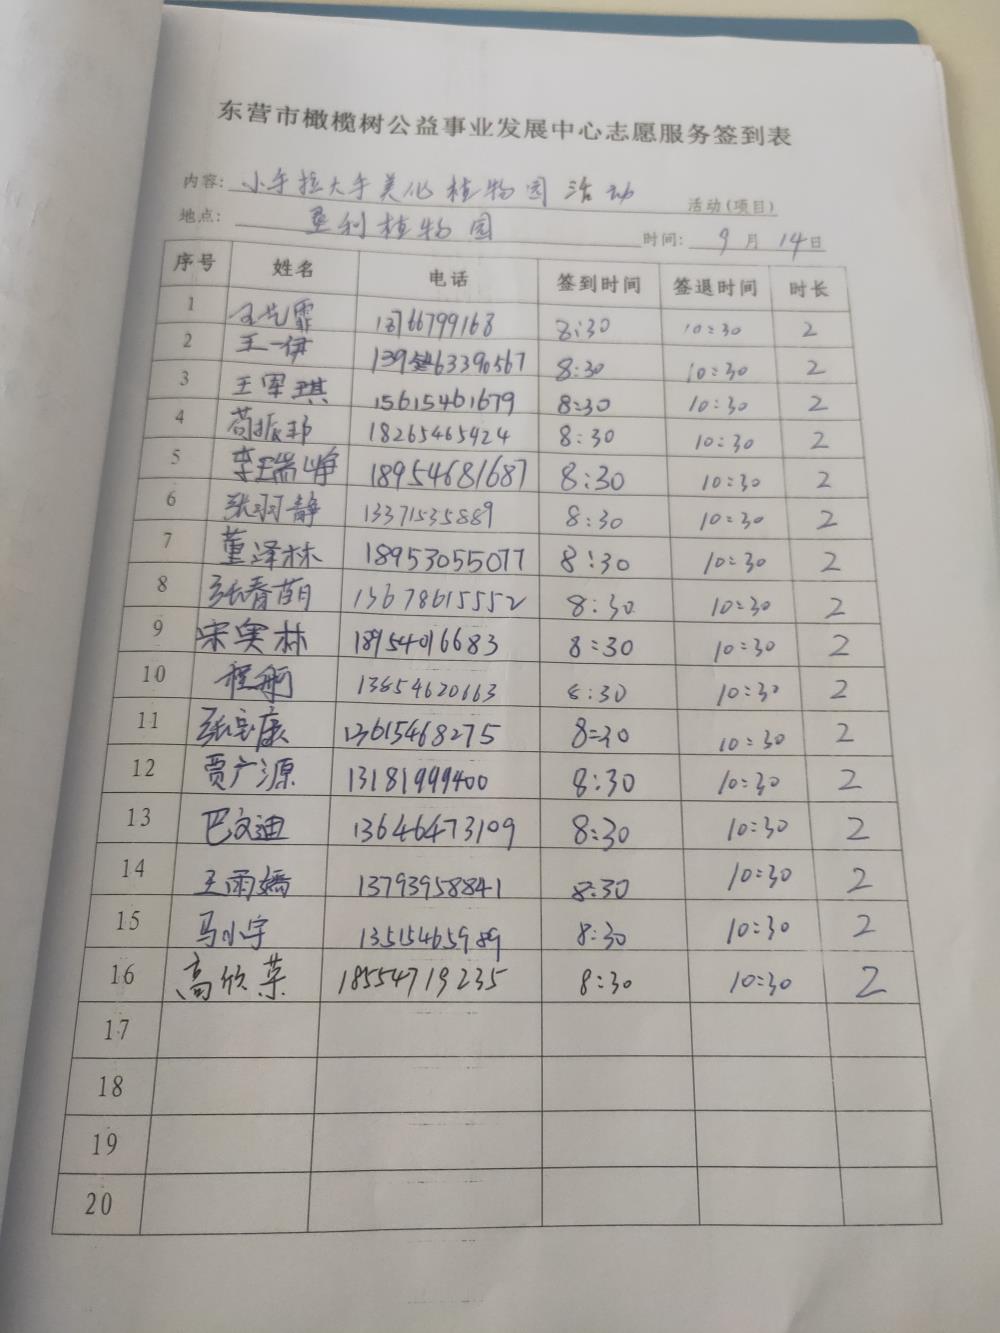 东营市橄榄树公益事业发展中心志愿服务签到表
内容: 小手拉大手美化植物园活动 活动(项目)
地点: 垦利植物园 时间: 9月14日
序号 姓名 电话 签到时间 签退时间 时长
1 13766799168 8:30 10:30 2
2 王一伊 8:30 10:30 2
3 王军琪 15615461679 8:30 10:30 2
4 苟振邦 18265465424 8:30 10:30 2
5 李瑞峥 18954681687 8:30 10:30 2
6 张羽静 13371535889 8:30 10:30 2
7 董泽林 18953055077 8:30 10:30 2
8 张春萌 13678615552 8:30 10:30 2
9 宋奥林 18954016683 8:30 10:30 2
10 程舸 13854620663 8:30 10:30 2
11 张宝康 13615468275 8:30 10:30 2
12 贾广源 13181999400 8:30 10:30 2
13 巴文迪 13646473109 8:30 10:30 2
14 王雨嫣 13793958841 8:30 10:30 2
15 马小宇 13515465989 8:30 10:30 2
16 高欣荣 18554719235 8:30 10:30 2
17
18
19
20